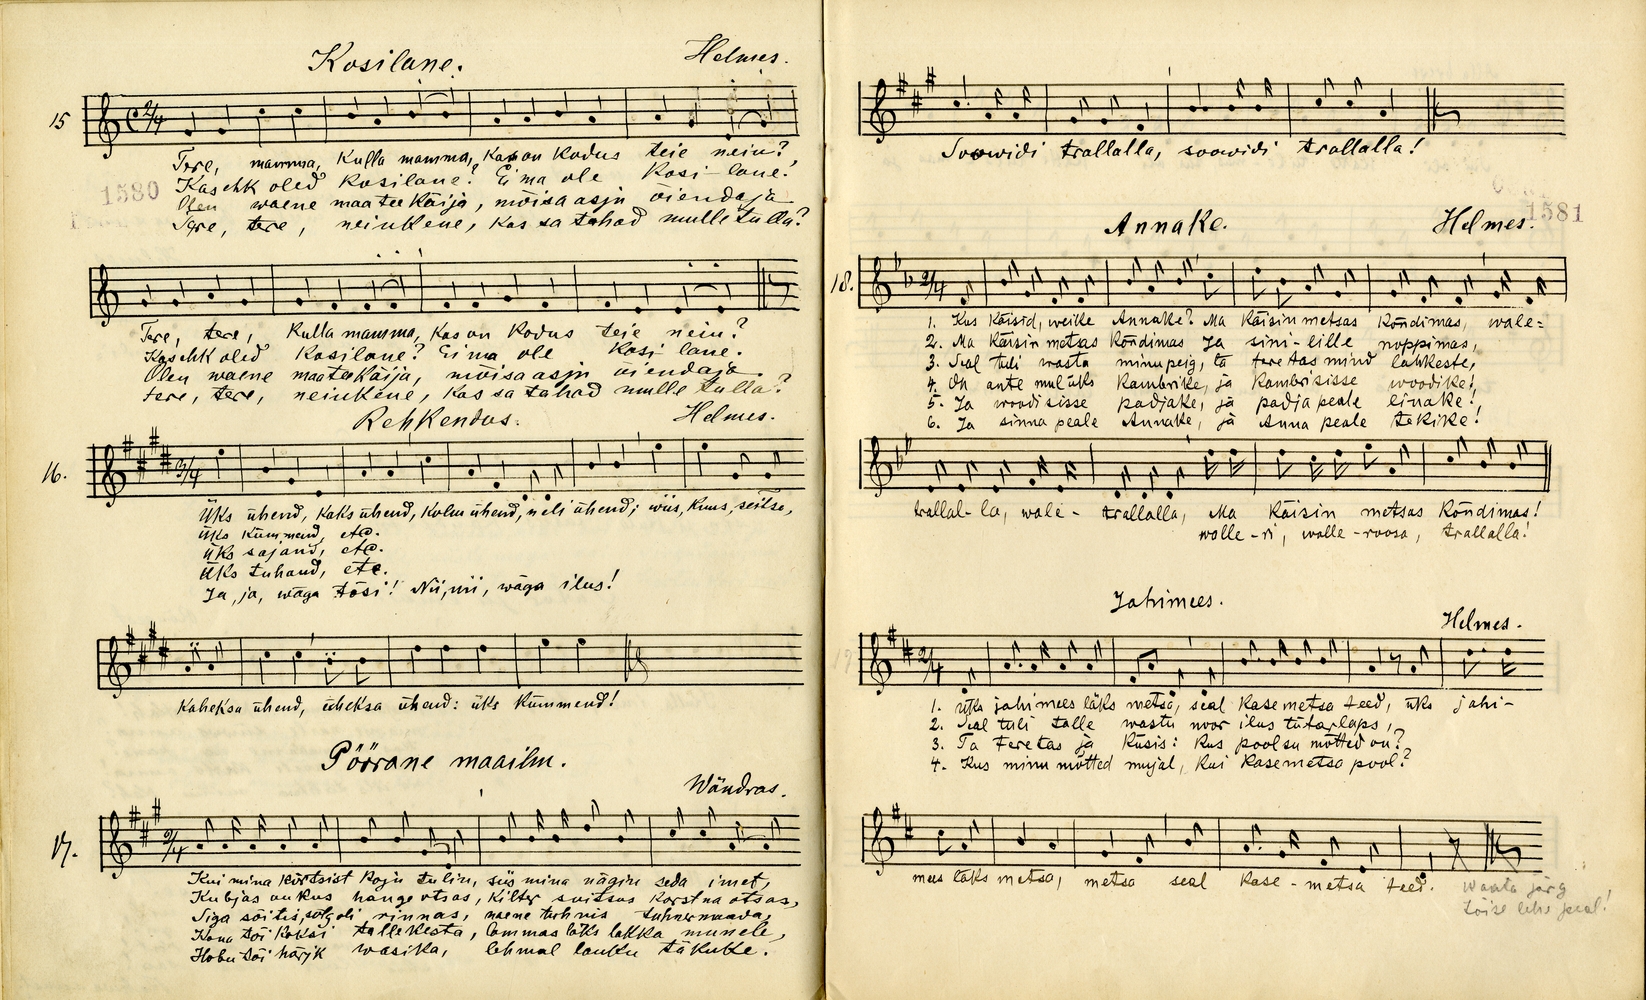 Kosilane. Helmes.
15
Tere, mamma, Kulla mamma, Kas on Kodus teie nein?
Kas ehk oled Kosilane? Ei ma ole Kosi-lane.
Olen waene maateekäija, mõisa asju õiendaja
Tere, tere, neinkene, Kas sa tahad mulle tulla?
1580
Tere, tere, Kulla mamma, Kas on Kodus teie nein?
Kas ehk oled Kosilane? Ei ma ole Kosi lane.
Olen waene maateekäija, mõisa asju õiendaja.
tere, tere, neinkene, Kas sa tahad mulle tulla?
Rehkendus. Helmes.
16.
Üks ühend, Kaks ühend, Kolm ühend, neli ühend; wiis, Kuus, seitse,
Üks Kümmend, etc.
Üks sajand, etc.
Üks tuhand, etc.
Ja, ja, wäga tõsi! Nii, nii, wäga ilus!
Kaheksa ühend, üheksa ühend: üks Kümmend!
Pöörane maailm.
Wändras.
17.
Kui mina Kõrtsist Koju tulin, siis mina nägin seda imet,
Kubjas aukus hange otsas, Kilter suitsus Korstna otsas,
Siga sõitis, solg oli rinnas, naene tuhnis tuhnermaada,
Kana tõi Kaksi tallekesta, lammas läks lakka munele,
Hobu tõi härjk wasika, lehmal lauku täkuke.
Soowidi trallalla, soowidi trallalla!
1581
Annake. Helmes.
18.
1. Kus Käisid, weike Annake? Ma Käisin metsas Kõndimas, wale-
2. Ma Käisin metsas Kõndimas Ja sini-lille noppimas,
3. Seal tuli wasta minu peig, ta teretas mind lahkeste,
4. On ante mul üks Kambrike, ja Kambrisisse woodike!
5. Ja woodi sisse padjake, ja padja peale linake!
6. Ja sinna peale Annake, ja Anna peale tekike!
trallal-la, wale- trallalla, Ma Käisin metsas Kõndimas!
walle-ri, walle-roosa, trallalla!
Jahimees.
Helmes.
19
1. Üks jahimees läks metsa, seal Kasemetsa teed, üks jahi-
2. Seal tuli talle wasta noor ilus tütarlaps,
3. Ta teretas ja Küsis: Kus pool su mõtted on?
4. Kus minu mõtted mujal, Kui Kasemetsa pool?
mees läks metsa, metsa seal Kase-metsa teed.
Waata järg
tõise lehe peal!